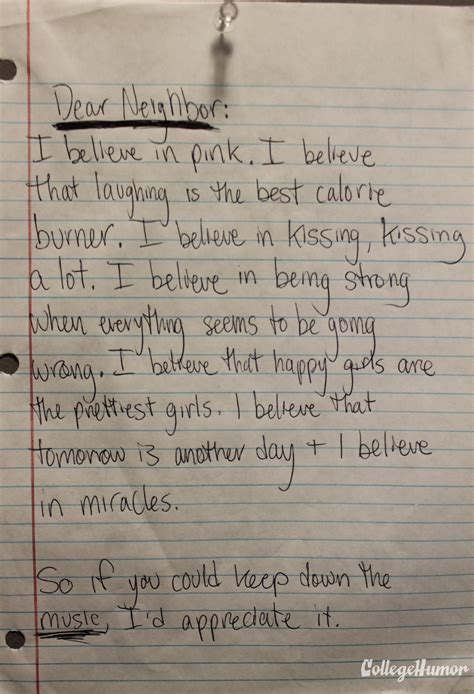 Dear Neighbor:
I believe in pink. I believe
that laughing is the best calorie
burner. I believe in kissing, kissing
a lot. I believe in being strong
when everything seems to be going
wrong. I believe that happy girls are
the prettiest girls. I believe that
tomorrow is another day + I believe
in miracles.
So if you could keep down the
music, I'd appreciate it.
CollegeHumor